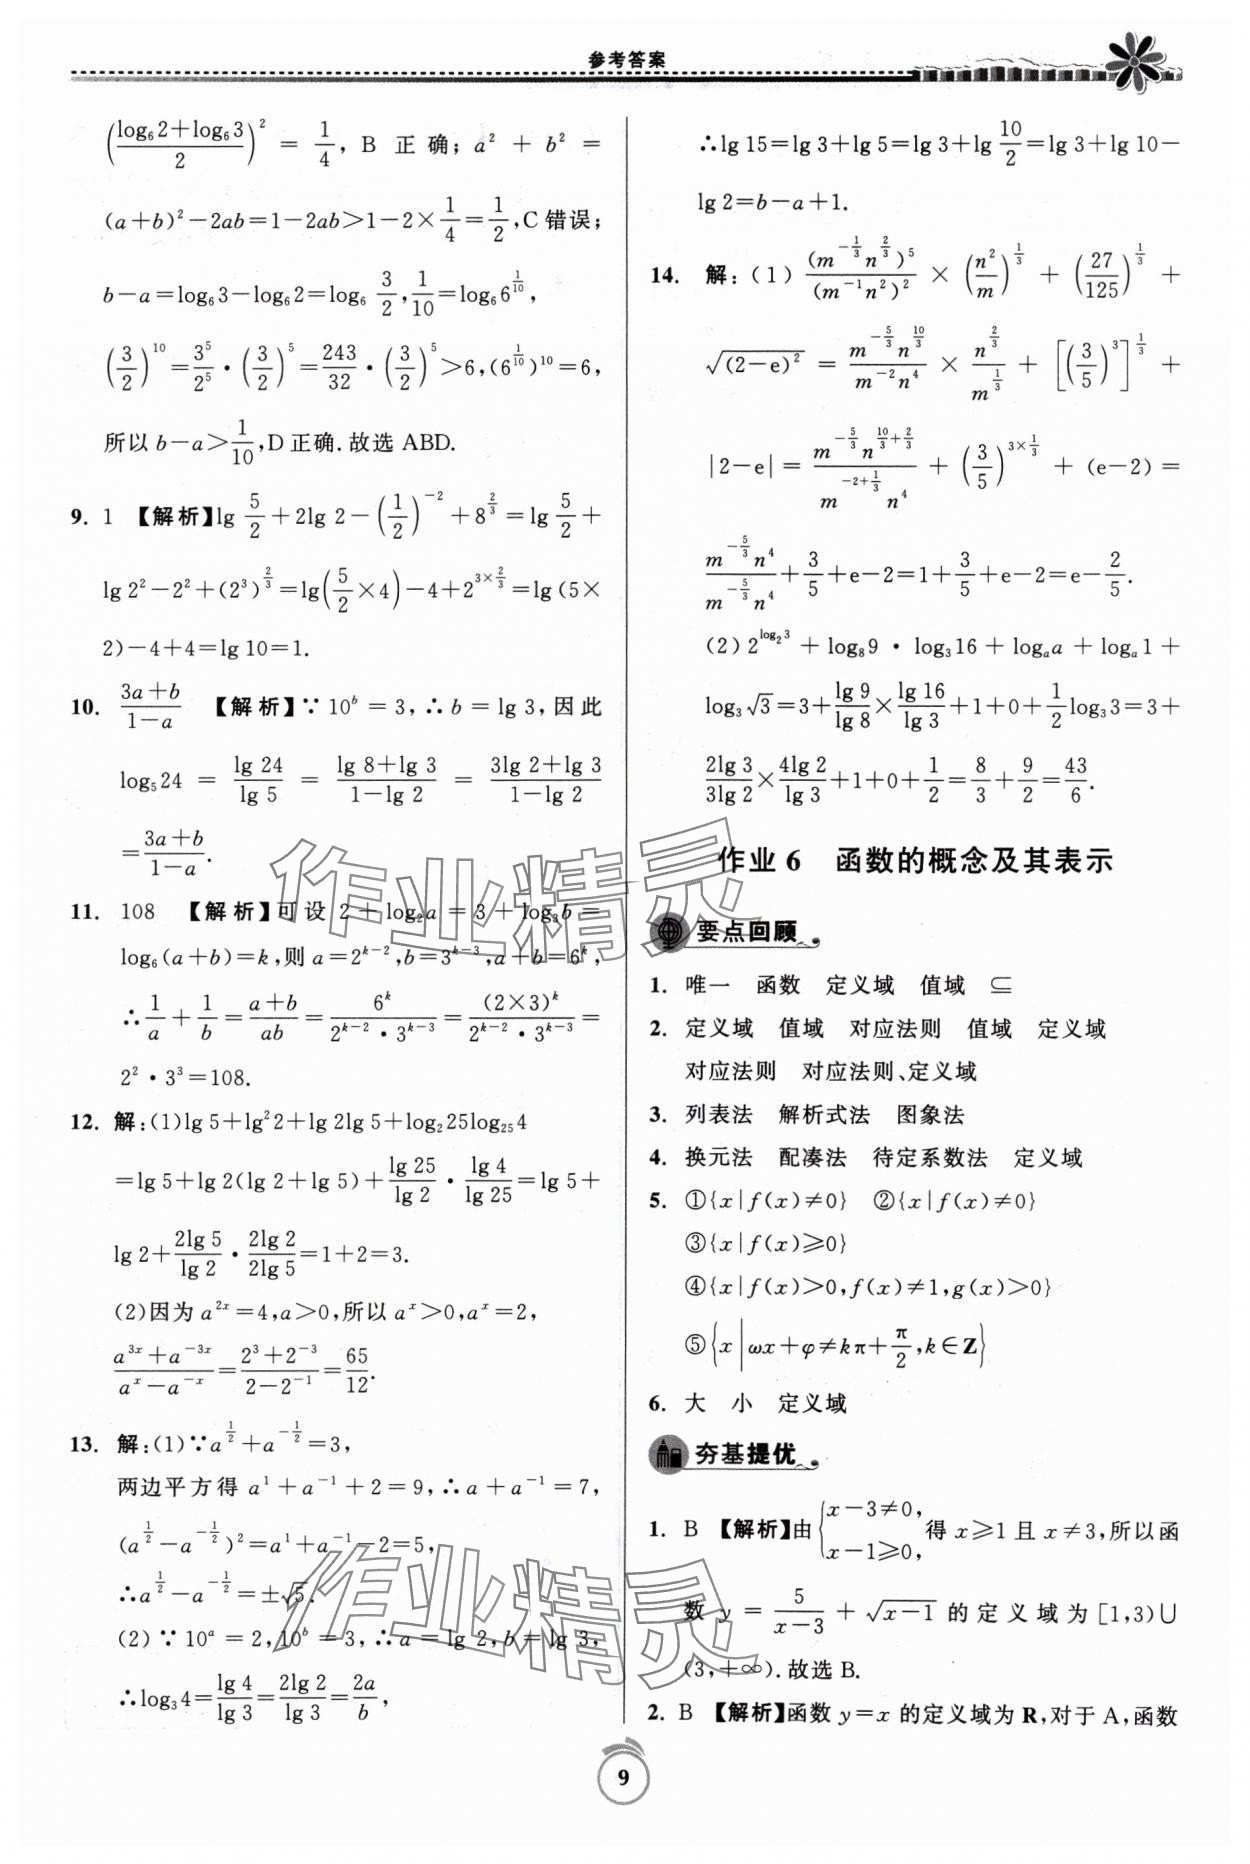 参考答案
$\left(\frac{\log_6 2+\log_6 3}{2}\right)^2=\frac{1}{4}$, B 正确; $a^2+b^2=$
$(a+b)^2-2ab=1-2ab>1-2\times\frac{1}{4}=\frac{1}{2}$, C 错误;
$b-a=\log_6 3-\log_6 2=\log_6\frac{3}{2}$, $\frac{1}{10}=\log_6 6^{\frac{1}{10}}$,
$\left(\frac{3}{2}\right)^{10}=\frac{3^5}{2^5}\cdot\left(\frac{3}{2}\right)^5=\frac{243}{32}\cdot\left(\frac{3}{2}\right)^5>6$, $(6^{\frac{1}{10}})^{10}=6$,
所以 $b-a>\frac{1}{10}$, D 正确. 故选 ABD.
9. 1 【解析】$\lg\frac{5}{2}+2\lg 2-\left(\frac{1}{2}\right)^{-2}+8^{\frac{2}{3}}=\lg\frac{5}{2}+$
$\lg 2^2-2^2+(2^3)^{\frac{2}{3}}=\lg\left(\frac{5}{2}\times4\right)-4+2^{3\times\frac{2}{3}}=\lg(5\times$
$2)-4+4=\lg 10=1.$
10. $\frac{3a+b}{1-a}$ 【解析】$\because 10^b=3$, $\therefore b=\lg 3$, 因此
$\log_5 24=\frac{\lg 24}{\lg 5}=\frac{\lg 8+\lg 3}{1-\lg 2}=\frac{3\lg 2+\lg 3}{1-\lg 2}$
$=\frac{3a+b}{1-a}.$
11. 108 【解析】可设 $2+\log_2 a=3+\log_3 b=$
$\log_6(a+b)=k$, 则 $a=2^{k-2}$, $b=3^{k-3}$, $a+b=6^k$,
$\therefore\frac{1}{a}+\frac{1}{b}=\frac{a+b}{ab}=\frac{6^k}{2^{k-2}\cdot3^{k-3}}=\frac{(2\times3)^k}{2^{k-2}\cdot3^{k-3}}=$
$2^2\cdot3^3=108.$
12. 解:(1)$\lg 5+\lg^2 2+\lg 2\lg 5+\log_2 25\log_{25}4$
$=\lg 5+\lg 2(\lg 2+\lg 5)+\frac{\lg 25}{\lg 2}\cdot\frac{\lg 4}{\lg 25}=\lg 5+$
$\lg 2+\frac{2\lg 5}{\lg 2}\cdot\frac{2\lg 2}{2\lg 5}=1+2=3.$
(2)因为 $a^{2x}=4$, $a>0$, 所以 $a^x>0$, $a^x=2$,
$\frac{a^{3x}+a^{-3x}}{a^x-a^{-x}}=\frac{2^3+2^{-3}}{2-2^{-1}}=\frac{65}{12}.$
13. 解:(1)$\because a^{\frac{1}{2}}+a^{-\frac{1}{2}}=3$,
两边平方得 $a^1+a^{-1}+2=9$, $\therefore a+a^{-1}=7$,
$(a^{\frac{1}{2}}-a^{-\frac{1}{2}})^2=a^1+a^{-1}-2=5$,
$\therefore a^{\frac{1}{2}}-a^{-\frac{1}{2}}=\pm\sqrt{5}.$
(2)$\because 10^a=2$, $10^b=3$, $\therefore a=\lg 2$, $b=\lg 3$,
$\therefore\log_3 4=\frac{\lg 4}{\lg 3}=\frac{2\lg 2}{\lg 3}=\frac{2a}{b}$,
$\therefore\lg 15=\lg 3+\lg 5=\lg 3+\lg\frac{10}{2}=\lg 3+\lg 10-$
$\lg 2=b-a+1.$
14. 解:(1)$\frac{(m^{-\frac{1}{3}}n^{\frac{2}{3}})^5}{(m^{-1}n^2)^2}\times\left(\frac{n^2}{m}\right)^{\frac{1}{3}}+\left(\frac{27}{125}\right)^{\frac{1}{3}}+$
$\sqrt{(2-e)^2}=\frac{m^{-\frac{5}{3}}n^{\frac{10}{3}}}{m^{-2}n^4}\times\frac{n^{\frac{2}{3}}}{m^{\frac{1}{3}}}+\left[\left(\frac{3}{5}\right)^3\right]^{\frac{1}{3}}+$
$|2-e|=\frac{m^{-\frac{5}{3}}n^{\frac{10}{3}+\frac{2}{3}}}{m^{-2+\frac{1}{3}}n^4}+\left(\frac{3}{5}\right)^{3\times\frac{1}{3}}+(e-2)=$
$\frac{m^{-\frac{5}{3}}n^4}{m^{-\frac{5}{3}}n^4}+\frac{3}{5}+e-2=1+\frac{3}{5}+e-2=e-\frac{2}{5}.$
(2)$2^{\log_2 3}+\log_8 9\cdot\log_3 16+\log_a a+\log_a 1+$
$\log_3\sqrt{3}=3+\frac{\lg 9}{\lg 8}\times\frac{\lg 16}{\lg 3}+1+0+\frac{1}{2}\log_3 3=3+$
$\frac{2\lg 3}{3\lg 2}\times\frac{4\lg 2}{\lg 3}+1+0+\frac{1}{2}=\frac{8}{3}+\frac{9}{2}=\frac{43}{6}.$
作业 6 函数的概念及其表示
要点回顾
1. 唯一 函数 定义域 值域 ⊆
2. 定义域 值域 对应法则 值域 定义域
对应法则 对应法则、定义域
3. 列表法 解析式法 图象法
4. 换元法 配凑法 待定系数法 定义域
5. ①$\{x|f(x)\neq0\}$ ②$\{x|f(x)\neq0\}$
③$\{x|f(x)\geqslant0\}$
④$\{x|f(x)>0,f(x)\neq1,g(x)>0\}$
⑤$\left\{x\middle|\omega x+\varphi\neq k\pi+\frac{\pi}{2},k\in\mathbf{Z}\right\}$
6. 大 小 定义域
夯基提优
1. B 【解析】由$\begin{cases}x-3\neq0,\\x-1\geqslant0,\end{cases}$得 $x\geqslant1$ 且 $x\neq3$, 所以函
数 $y=\frac{5}{x-3}+\sqrt{x-1}$ 的定义域为 $[1,3)\cup$
$(3,+\infty)$. 故选 B.
2. B 【解析】函数 $y=x$ 的定义域为 $\mathbf{R}$, 对于 A, 函数
9
作业精灵
作业精灵